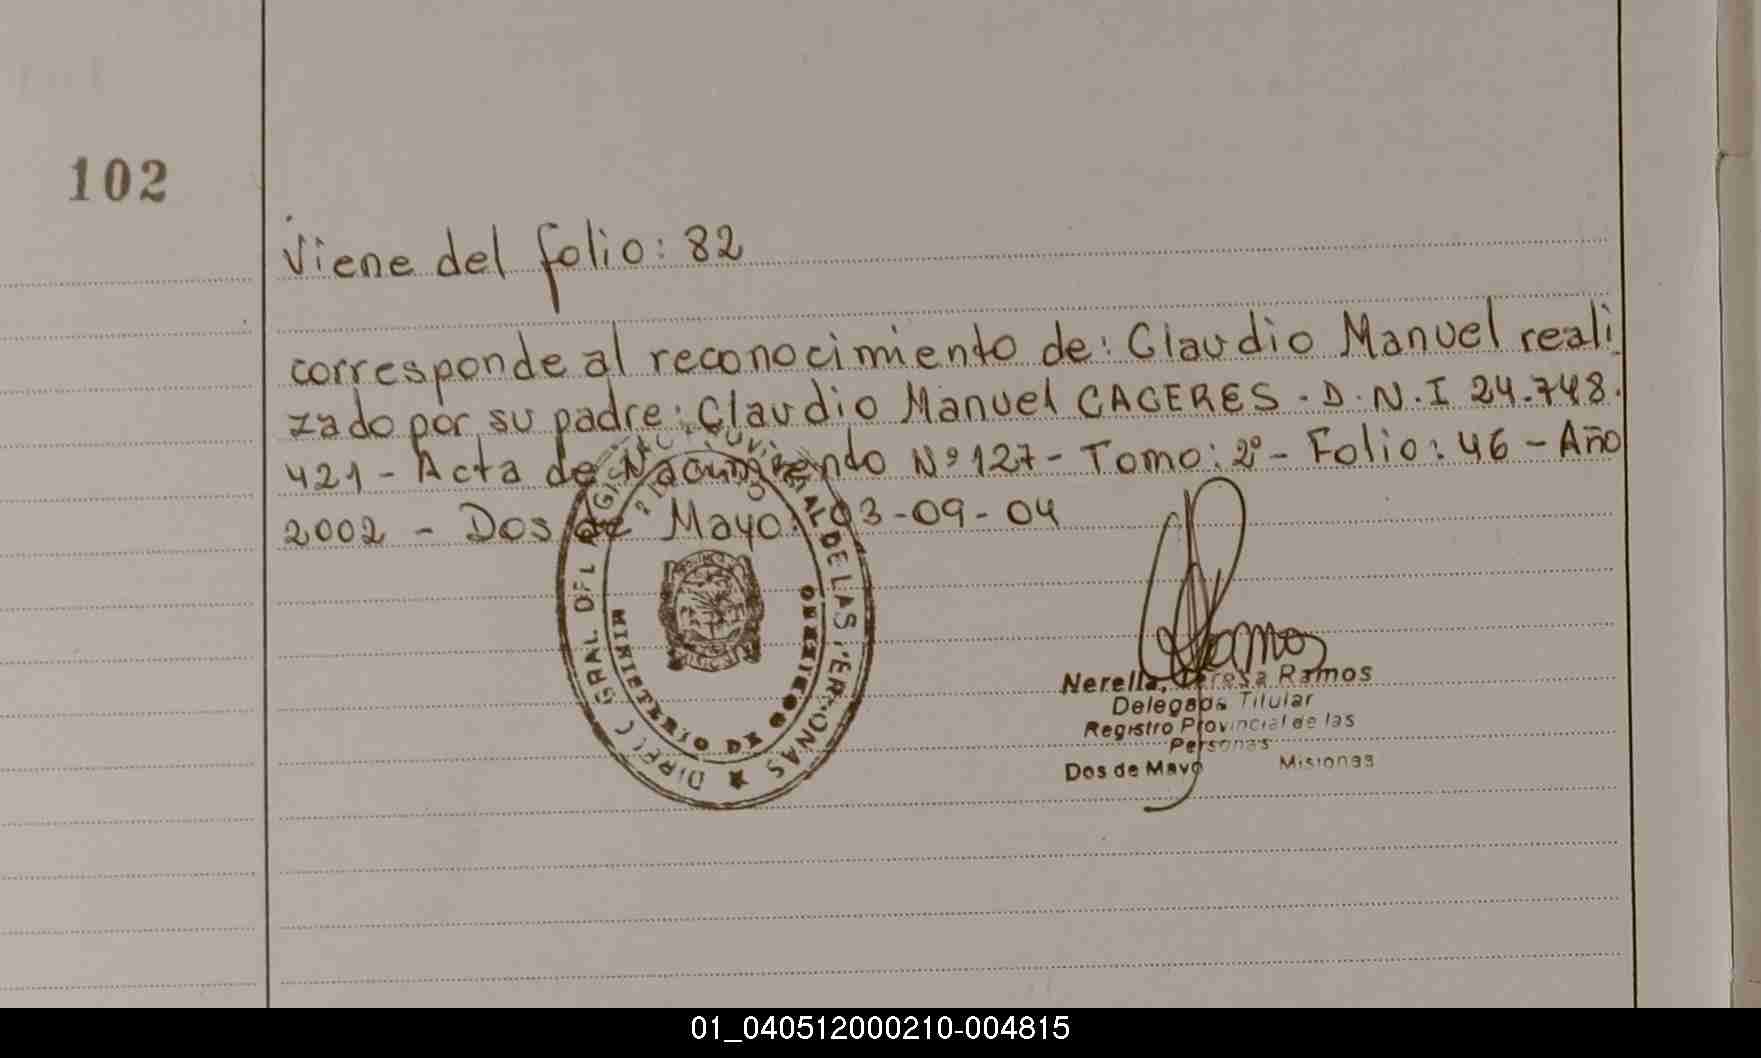 102
Viene del folio: 82
corresponde al reconocimiento de: Claudio Manuel reali
zado por su padre: Claudio Manuel CACERES. D.N.I 24.748.
421 - Acta de Nacimiento Nº 127 - Tomo: 2º - Folio: 46 - Año
2002 - Dos de Mayo: 03-09-04
GRAL DEL DE LAS PERSONAS
MINISTERIO DE GOBIERNO
Ramos
Nerella, Teresa Ramos
Delegada Titular
Registro Provincial de las
Personas
Dos de Mayo Misiones
01_040512000210-004815